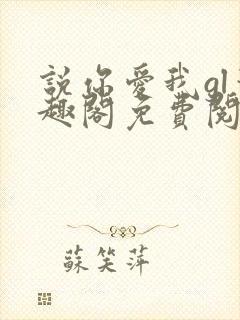 說你愛我gl
趣閣免費閱
蘇笑萍